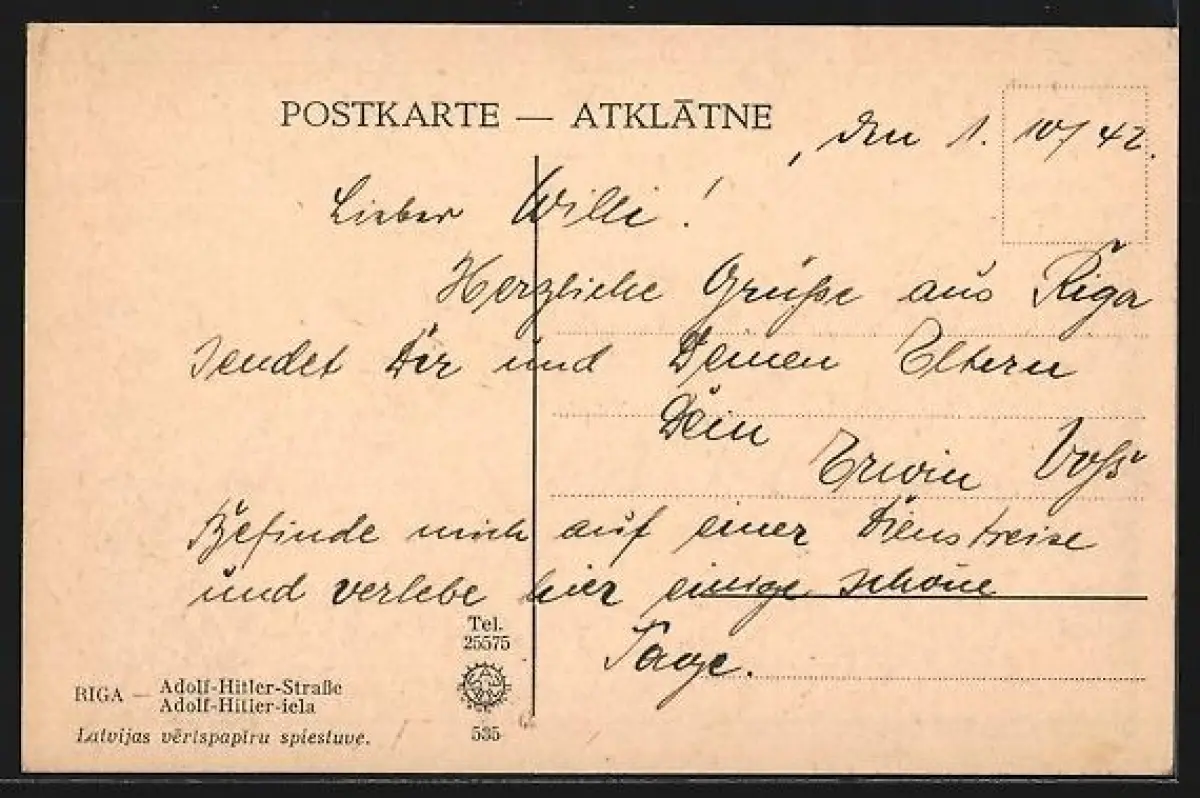 POSTKARTE — ATKLĀTNE
, den 1. 10/ 42.
Lieber Willi!
Herzliche Grüße aus Riga
sendet Dir und Deinen Eltern
Dein
Erwin Voß
Befinde mich auf einer Dienstreise
und verlebe hier einige schöne
Tage.
Tel.
25575
RIGA — Adolf-Hitler-Straße
Adolf-Hitler-iela
Latvijas vērtspapīru spiestuve.
535